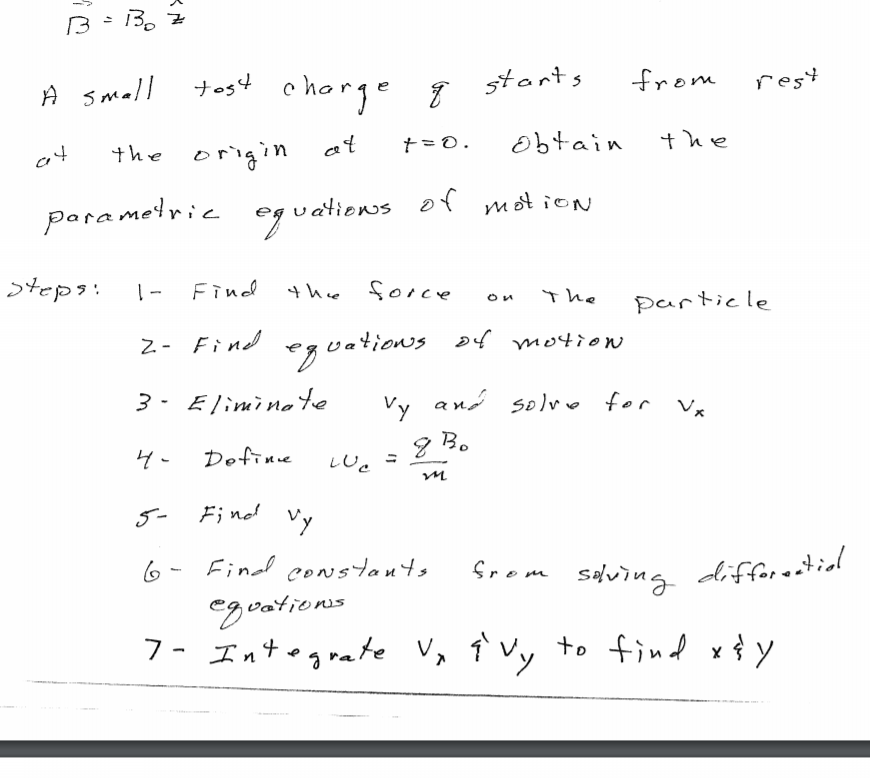 B⃗ = B₀ ẑ
A small test charge q starts from rest
at the origin at t=0. Obtain the
parametric equations of motion
Steps: 1- Find the force on the particle
2- Find equations of motion
3- Eliminate Vy and solve for Vx
4- Define ωc = qB₀/m
5- Find Vy
6- Find constants from solving differential
equations
7- Integrate Vx & Vy to find x & y